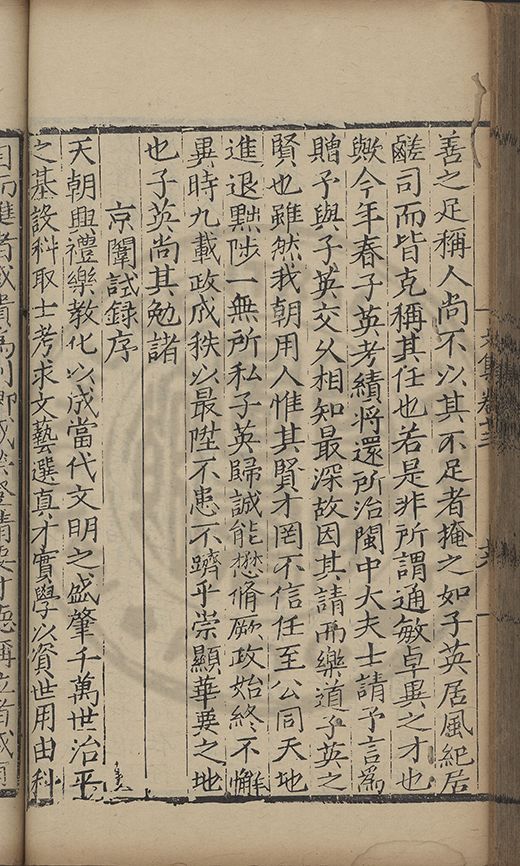 善之足稱人尚不以其不足者掩之如子英居風紀居
鹺司而皆克稱其任也若是非所謂通敏卓異之才也
歟今年春子英考績將還所治閩中大夫士請予言為
贈予與子英交久相知最深故因其請而樂道子英之
賢也雖然我朝用人惟其賢才罔不信任至公同天地
進退黜陟一無所私子英歸誠能懋脩厥政始終不懈
畢時九載政成秩以最陞不患不躋乎崇顯華要之地
也子英尚其勉諸
京闈試録序
天朝興禮樂教化以成當代文明之盛肇千萬世治平
之基設科取士考求文藝選真才實學以資世用由科